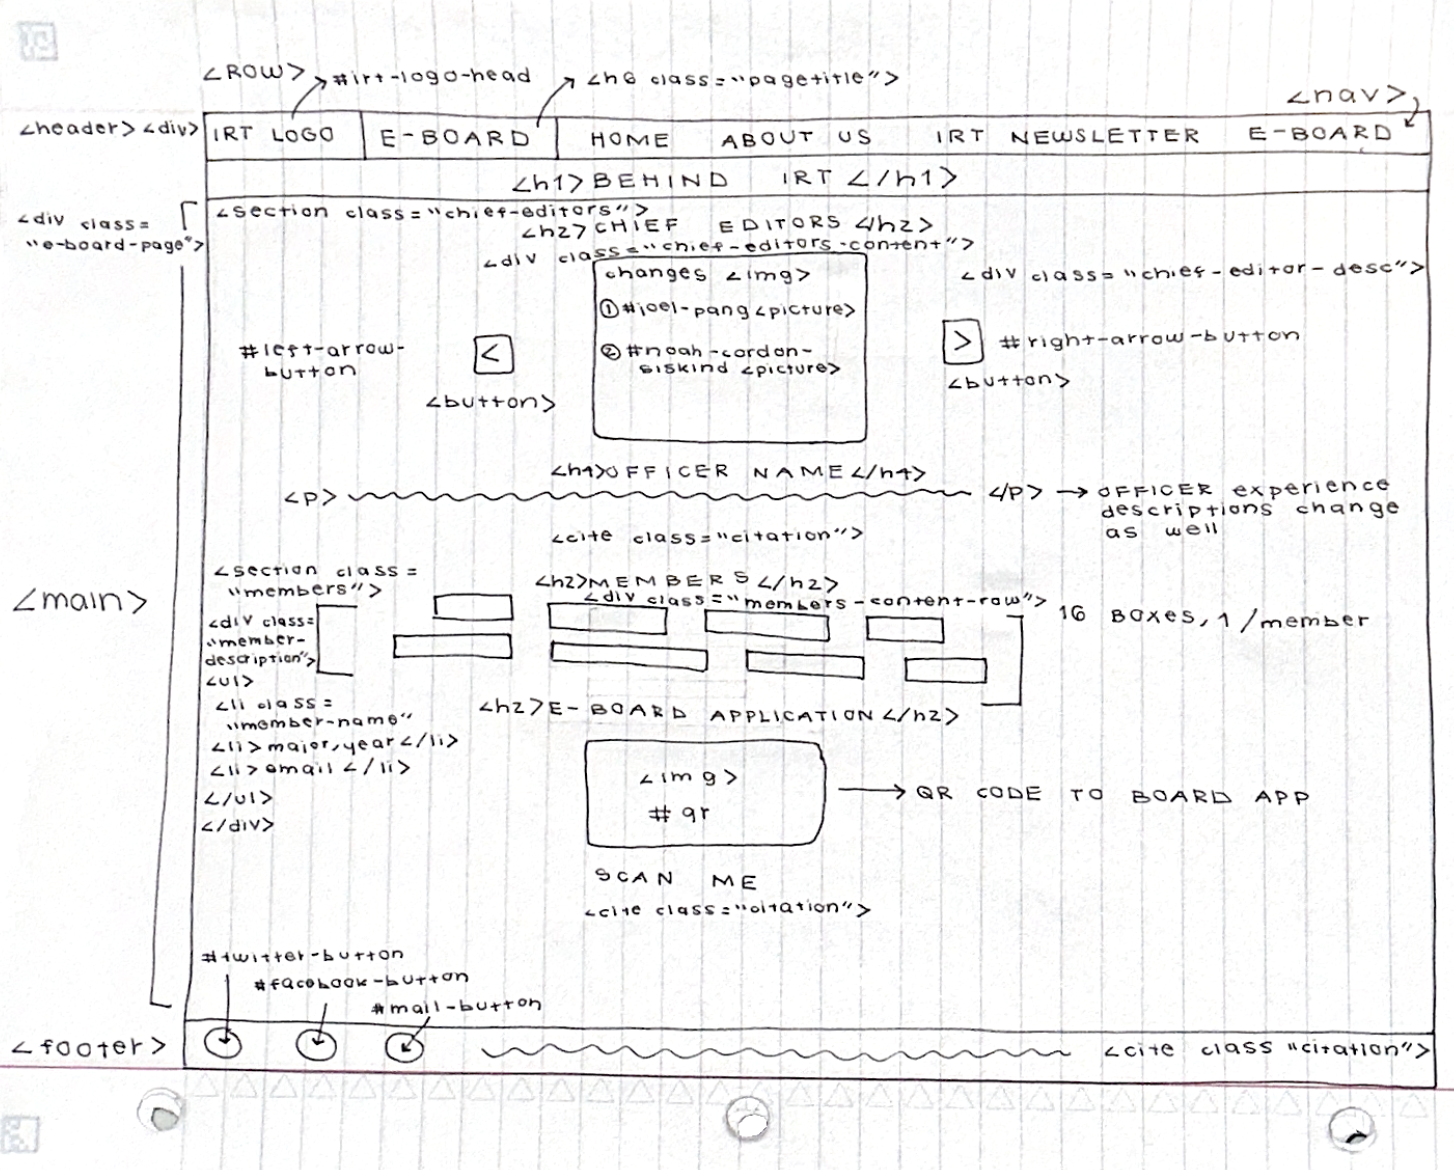 <ROW>
#irt-logo-head
<h6 class="pagetitle">
<nav>
<header> <div>
IRT LOGO
E-BOARD
HOME ABOUT US IRT NEWSLETTER E-BOARD
<h1>BEHIND IRT </h1>
<div class=
"e-board-page">
<section class="chief-editors">
<h2>CHIEF EDITORS </h2>
<div class="chief-editors-content">
<div class="chief-editor-desc">
changes <img>
① #joel-pang <picture>
② #noah-cordon-
siskind <picture>
#left-arrow-
button
<
<button>
>
#right-arrow-button
<button>
<h4>OFFICER NAME </h4>
<p>
</P> → OFFICER experience
descriptions change
as well
<cite class="citation">
<main>
<section class=
"members">
<h2>MEMBERS </h2>
<div class="members-content-row">
16 BOXES, 1 /member
<div class=
"member-
description">
<ul>
<li class=
"member-name"
<li> major, year </li>
<li> email </li>
</ul>
</div>
<h2>E-BOARD APPLICATION </h2>
<img>
#qr
→ QR CODE TO BOARD APP
SCAN ME
<cite class="citation">
#twitter-button
#facebook-button
#mail-button
<footer>
<cite class "citation">